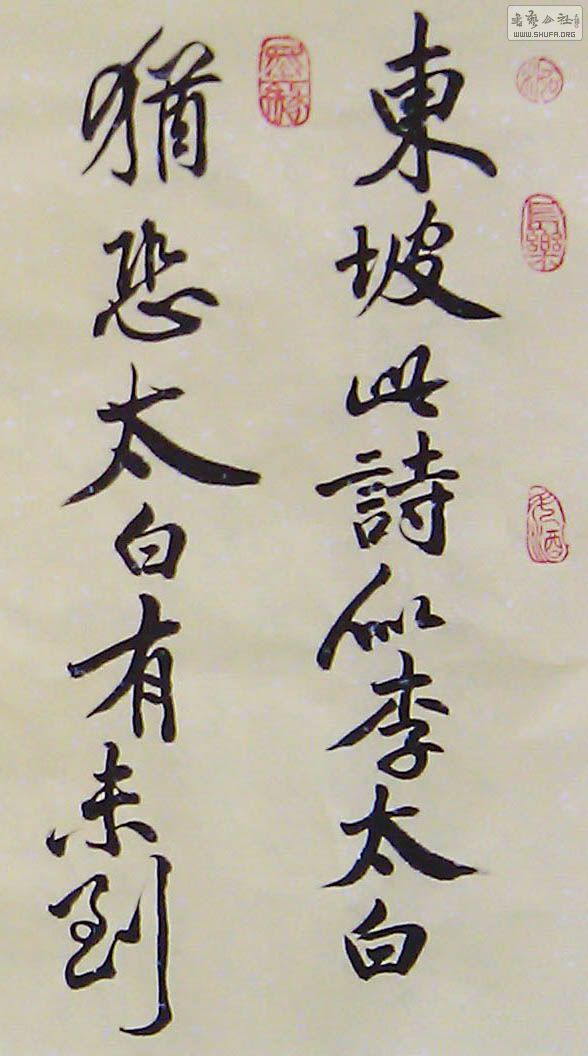 東坡此詩似李太白
猶恐太白有未到
书艺公社
WWW.SHUFA.ORG